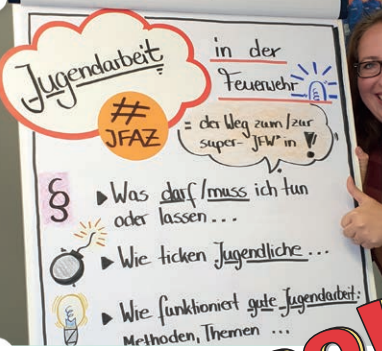 Jugendarbeit
in der
Feuerwehr
#
JFAZ
= der Weg zum/zur
super-"JFW"in !
§
▶ Was darf/muss ich tun
oder lassen ...
▶ Wie ticken Jugendliche ...
▶ Wie funktioniert gute Jugendarbeit:
Methoden, Themen ...